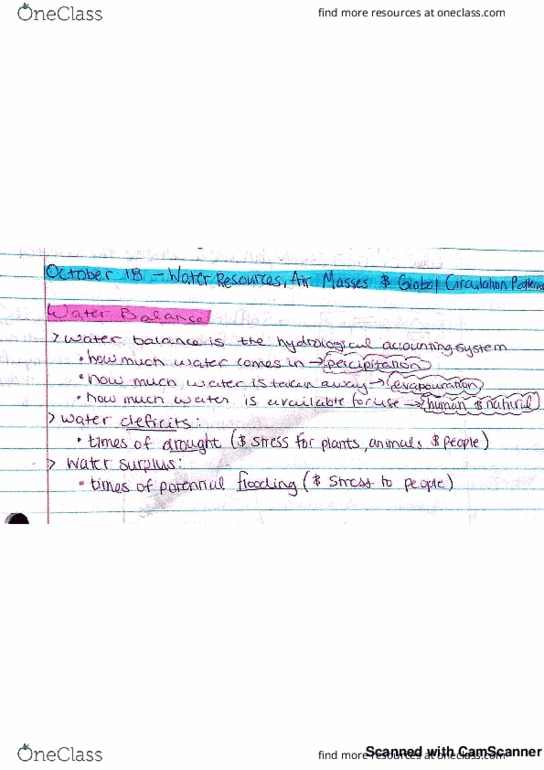 OneClass
find more resources at oneclass.com
October 18 - Water Resources, Air Masses & Global Circulation Patterns
Water Balance
> water balance is the hydrological accounting system
• how much water comes in → percipitation
• how much water is taken away → evapouration
• how much water is available for use → human & natural
> water deficits:
• times of drought (& stress for plants, animals & people)
> water surplus:
• times of potennial flooding (& stress to people)
OneClass
find more resources at oneclass.com
Scanned with CamScanner